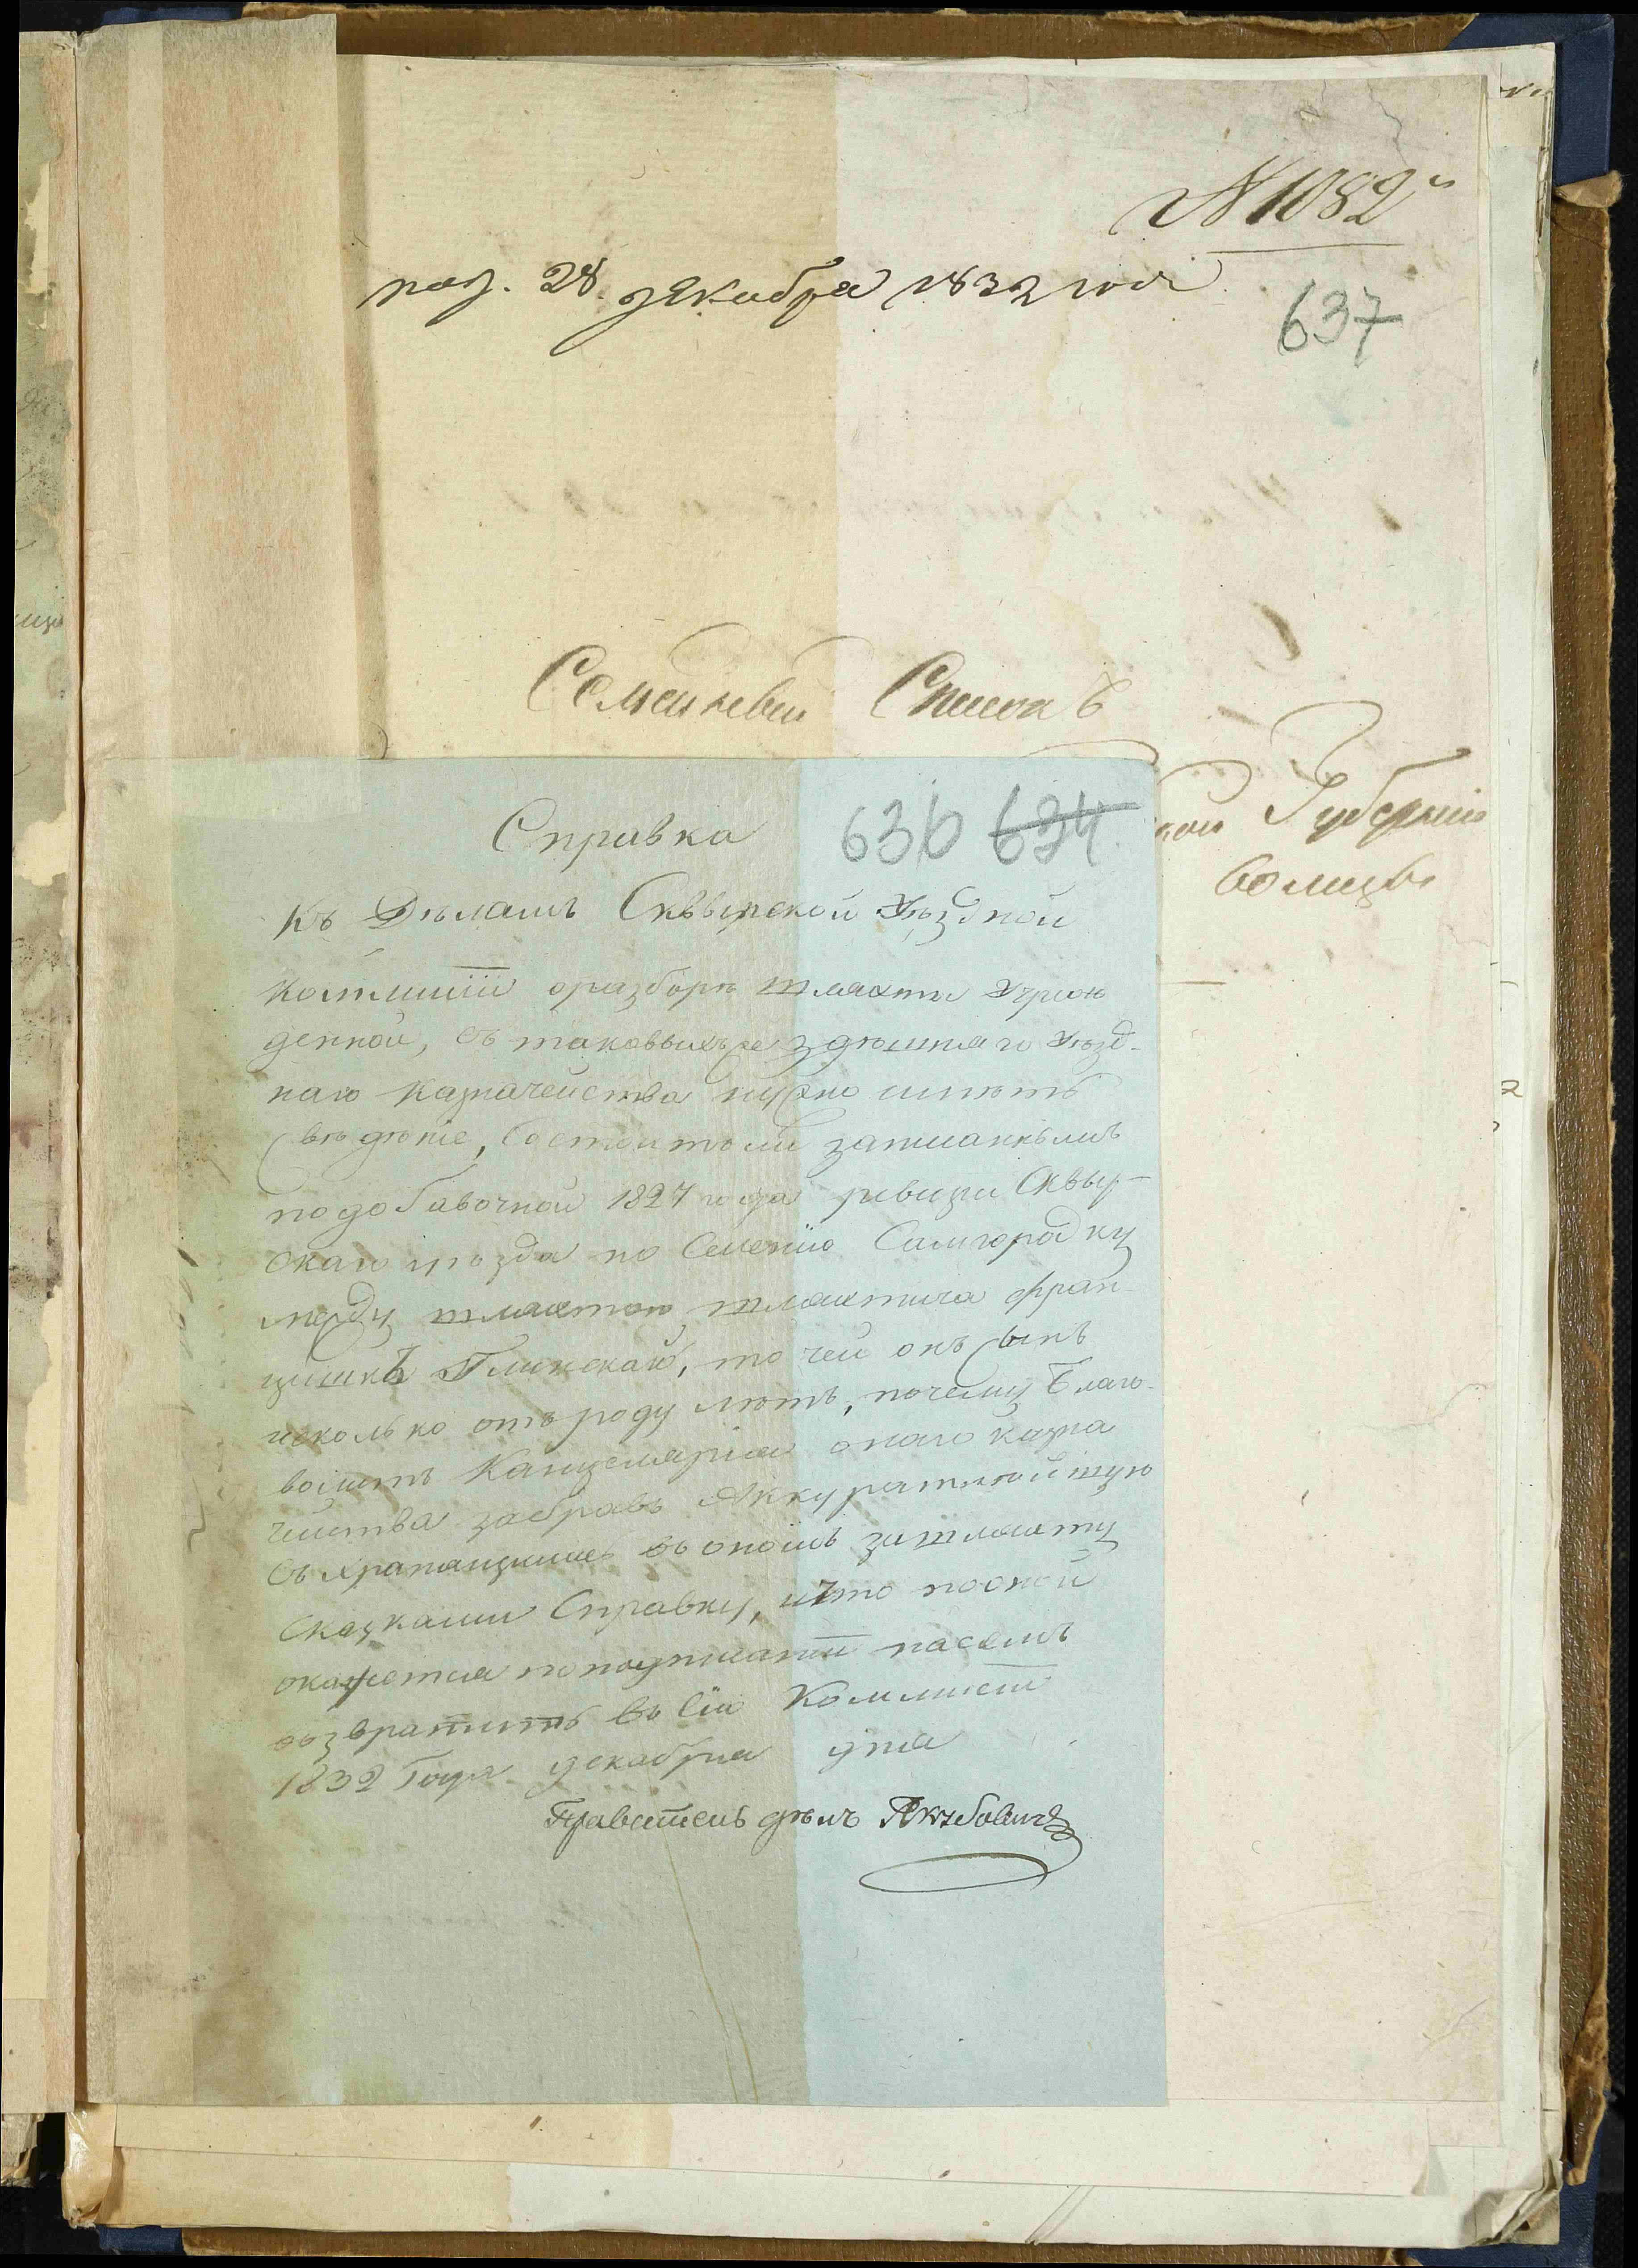 № 1082й
раз. 28 декабря 1832 года
637
Семейный Списокъ
кой Губерніи
636 634
Справка
Къ Дѣламъ Сквырской Уѣздной
Коммисіи о разборѣ шляхты Учреж
денной, съ таковыхъ же здѣшняго Уѣзд-
наго Казначейства нужно имѣть
свѣденіе, Состоитъ ли записаннымъ
по добавочной 1827 года ревизіи Сквыр-
скаго уѣзда по Селенію Самгородку
между шляхтою шляхтича Фран-
цишка Глинскаго, то чей онъ Сынъ
исколько отъ роду лѣтъ, почему Благо-
волитъ Канцелярія онаго казна
чейства забравъ Аккуратнѣйшую
съ хранящимися въ ономъ за шляхту
Сказками Справку, и что по оной
окажется по подписаніи на семъ
возвратить въ Сію Коммисію
1832 Года декабря дня
Правитель дѣлъ Якубовичъ